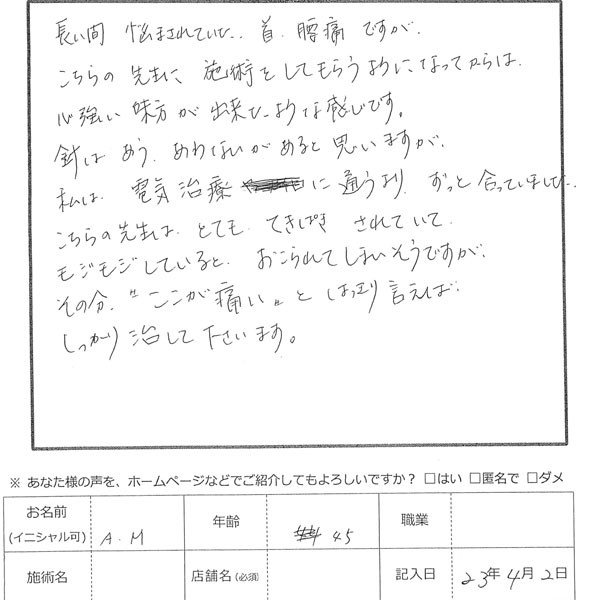 長い間 悩まされていた、首、腰痛ですが、
こちらの先生に、施術をしてもらうようになってからは、
心強い味方が出来たような感じです。
針は あう、あわないがあると思いますが、
私は、電気治療 に通うより、ずっと合っていました。
こちらの先生は、とても、てきぱき されていて、
モジモジしていると、おこられてしまいそうですが、
その分、"ここが痛い"と はっきり言えば、
しっかり治して下さいます。
※ あなた様の声を、ホームページなどでご紹介してもよろしいですか？ □はい □匿名で □ダメ
お名前 (イニシャル可) A.M 年齢 45 職業
施術名 店舗名(必須) 記入日 23年4月2日